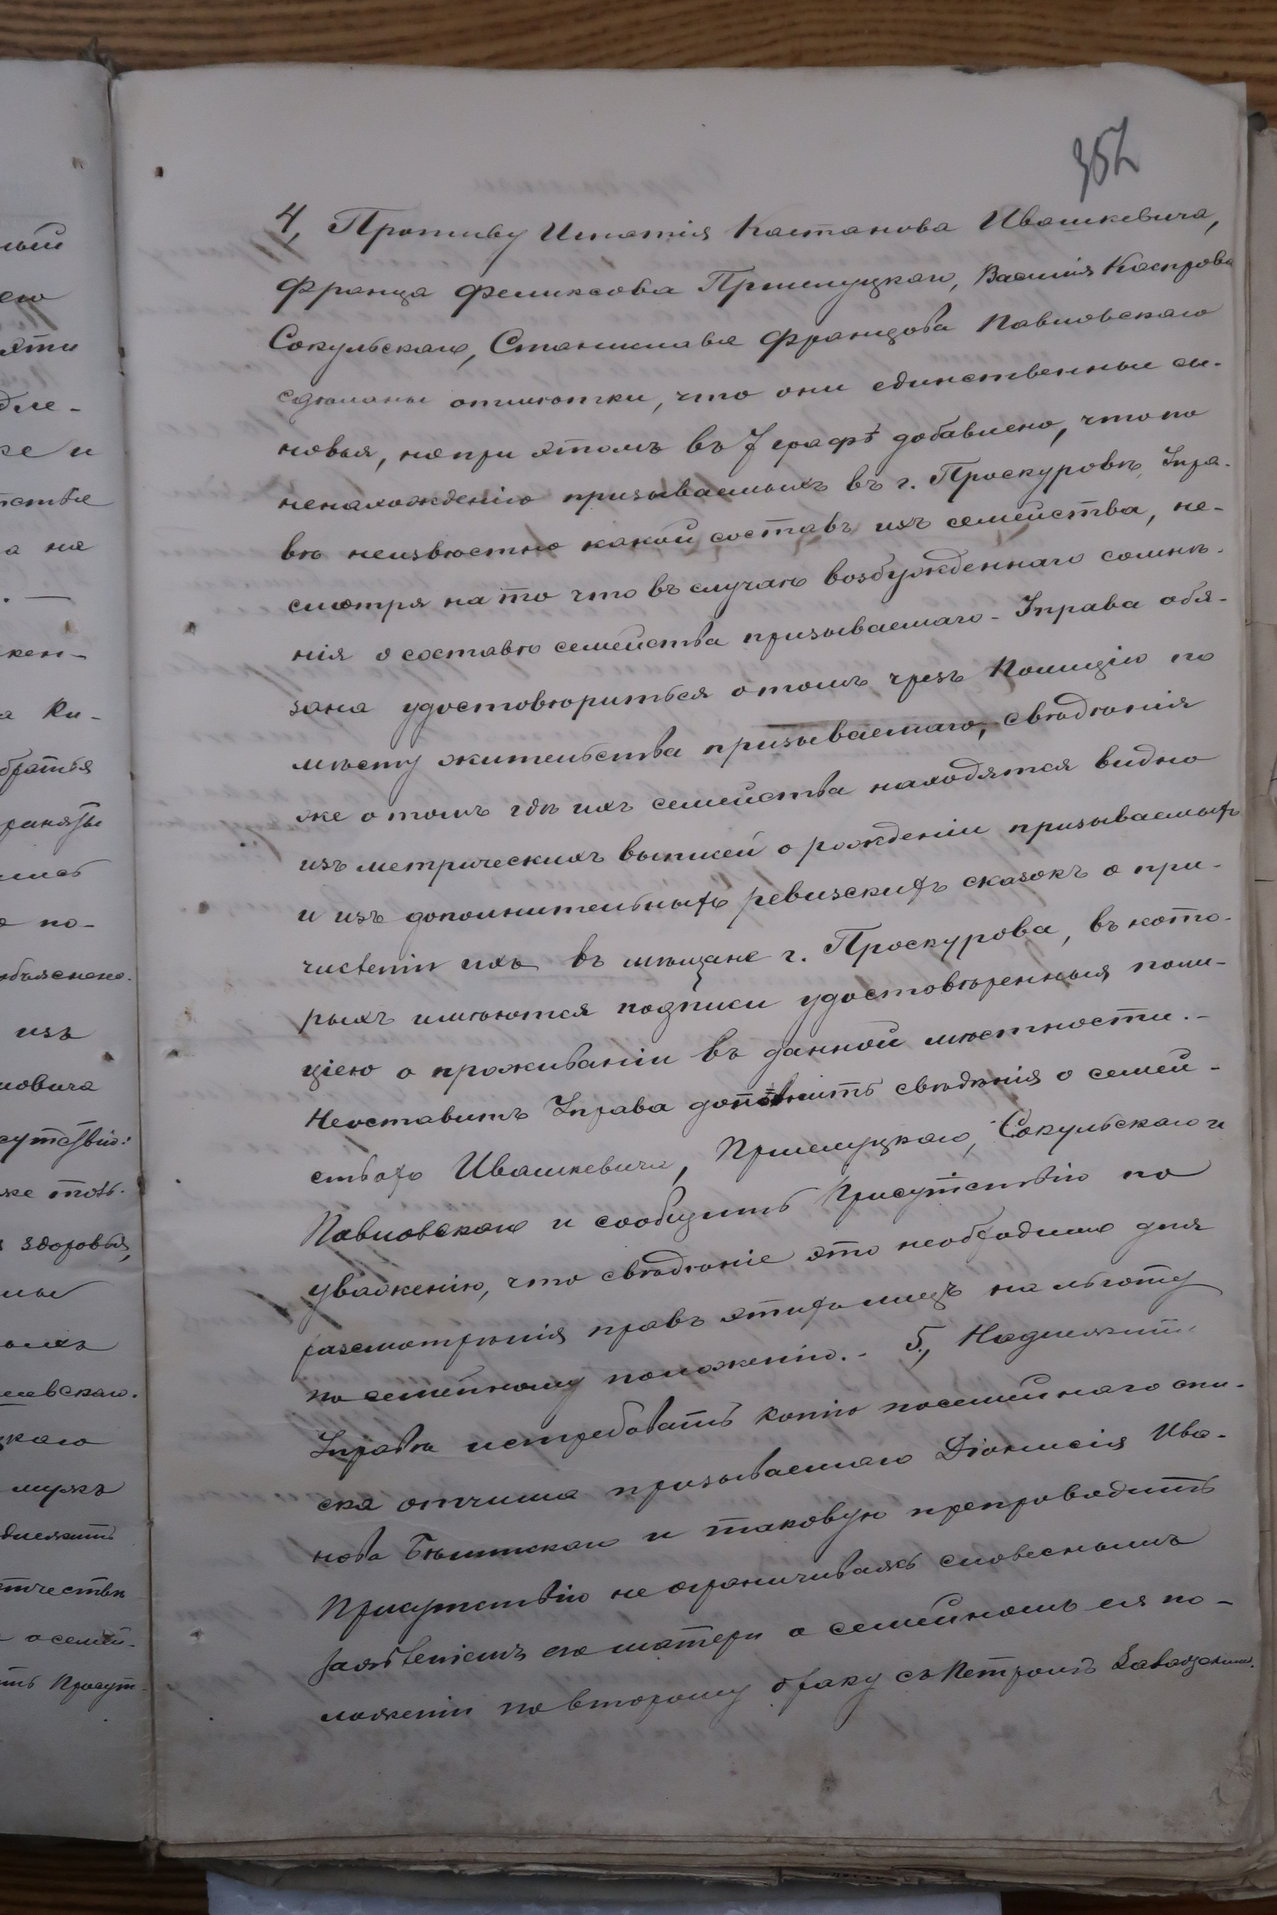 352
4, Противу Игнатія Каетанова Ивашкевича,
Франца Феликсова Прилуцкаго, Василія Каспрова
Сокульскаго, Станислава Францова Павловскаго
сдѣланы отмѣтки, что они единственные сы-
новья, но при этомъ въ 7 графѣ добавлено, что по
ненахожденію призываемыхъ въ г. Проскуровѣ, Упра-
вѣ неизвѣстно какой составъ ихъ семейства, не-
смотря на то что въ случаѣ возбужденнаго сомнѣ-
нія о составѣ семейства призываемаго - Управа обя-
зана удостовѣриться о томъ чрезъ Полицію по
мѣсту жительства призываемаго, свѣдѣнія
же о томъ гдѣ ихъ семейства находятся видно
изъ метрическихъ выписей о рожденіи призываемыхъ
и изъ дополнительныхъ ревизскихъ сказокъ о при-
численіи ихъ въ мѣщане г. Проскурова, въ кото-
рыхъ имѣются подписи удостовѣренныя поли-
ціею о проживаніи въ данной мѣстности.-
Неоставитъ Управа дополнить свѣдѣнія о семей-
ствахъ Ивашкевича, Прилуцкаго, Сокульскаго и
Павловскаго и сообщить Присутствію по
уваженію, что свѣдѣніе это необходимо для
разсмотрѣнія правъ этихъ лицъ на льготу
по семейному положенію. - 5, Надлежитъ
Управѣ истребовать копію посемейнаго спи-
ска отчима призываемаго Діонисія Ива-
нова и таковую препроводить
Присутствію не ограничиваясь словеснымъ
заявленіемъ его матери о семейномъ ея по-
ложеніи по второму браку съ Петромъ
ной
его
яти
дле-
же и
а на
кен-
а Ки-
братья
по-
объяснено.
изъ
новича
сутствію:
же
здоровья,
ыхъ
левскаго.
цкаго
мужъ
длежитъ
течествѣ
о семей-
ть Присут-